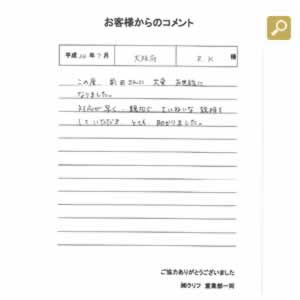 お客様からのコメント
平成 年 7 月 大阪府 R.K 様
この度、前田さんに 大変 お世話に
なりました。
対応が早く、親切で ていねいな 説明を
していただき、とても 助かりました。
ご協力ありがとうございました
㈱クリフ 営業部一同